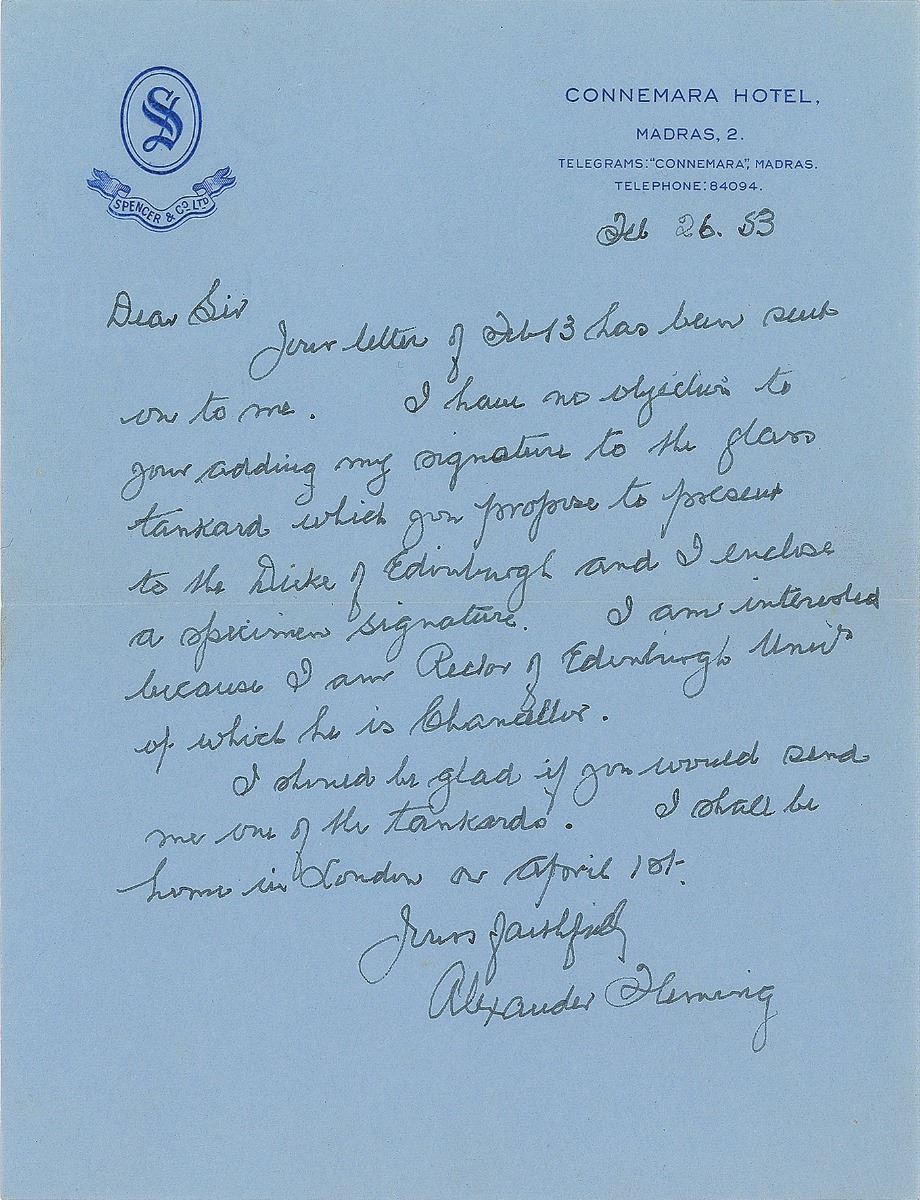 S
SPENCER & CO LTD
CONNEMARA HOTEL,
MADRAS, 2.
TELEGRAMS: "CONNEMARA", MADRAS.
TELEPHONE: 84094.
Feb 26. 53
Dear Sir
Your letter of Feb 13 has been sent
on to me. I have no objection to
your adding my signature to the glass
tankard which you propose to present
to the Duke of Edinburgh and I enclose
a specimen signature. I am interested
because I am Rector of Edinburgh Univ
of which he is Chancellor.
I should be glad if you would send
me one of the tankards. I shall be
home in London on April 1st.
Yours faithfully
Alexander Fleming